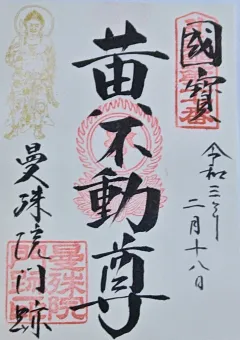 國寳
令和三年
二月十八日
黄不動尊
曼殊院門跡
曼殊院